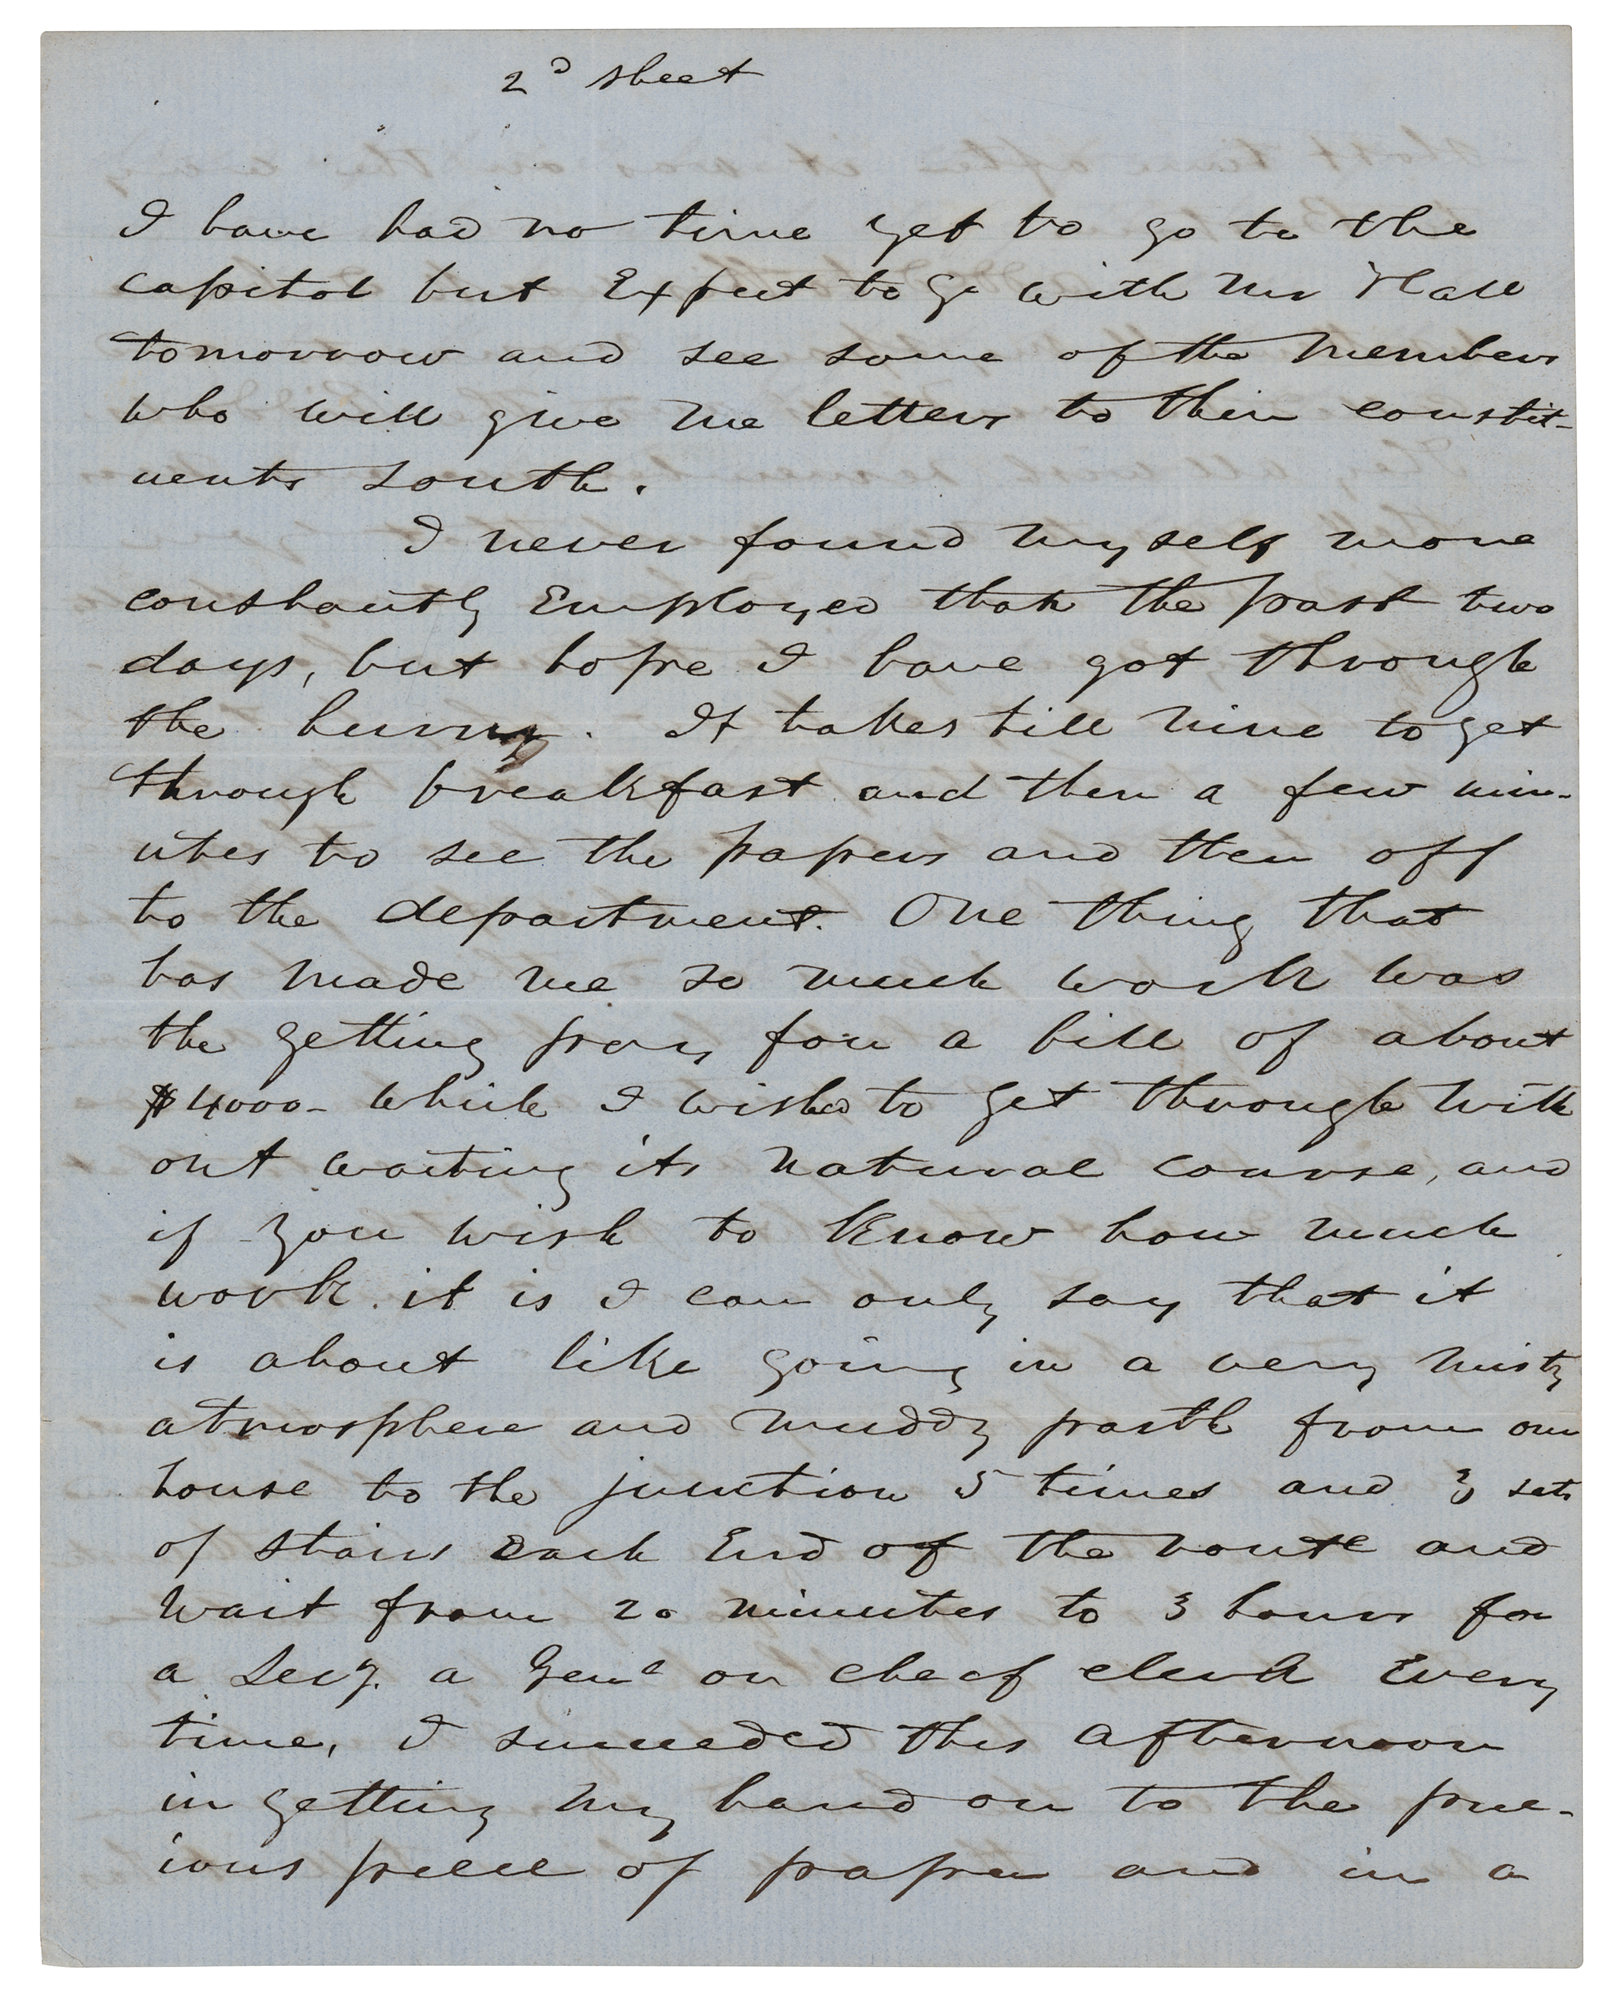 2d sheet
I have had no time yet to go to the
capitol but Expect to go with Mr Hall
tomorrow and see some of the members
who will give me letters to their constit-
uents South.
I never found myself more
constantly Employed than the past two
days, but hope I have got through
the hurry. It takes till nine to get
through breakfast and then a few min-
utes to see the papers and then off
to the department. One thing that
has made me so much work was
the getting pay for a bill of about
$4000- which I wished to get through with
out waiting its natural course, and
if you wish to know how much
work it is I can only say that it
is about like going in a very misty
atmosphere and muddy path from our
house to the junction 5 times and 3 sets
of stairs Each End of the route and
wait from 20 minutes to 3 hours for
a Secy. a Genl or cheef clerk Every
time, I succeeded this afternoon
in getting my hand on to the prec-
ious peece of paper and in a